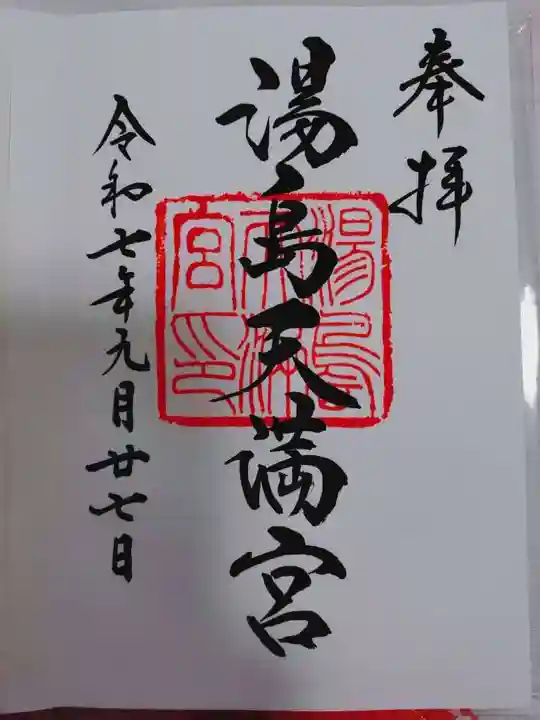 奉拝
湯島天満宮
湯島天満宮印
令和七年元月廿七日